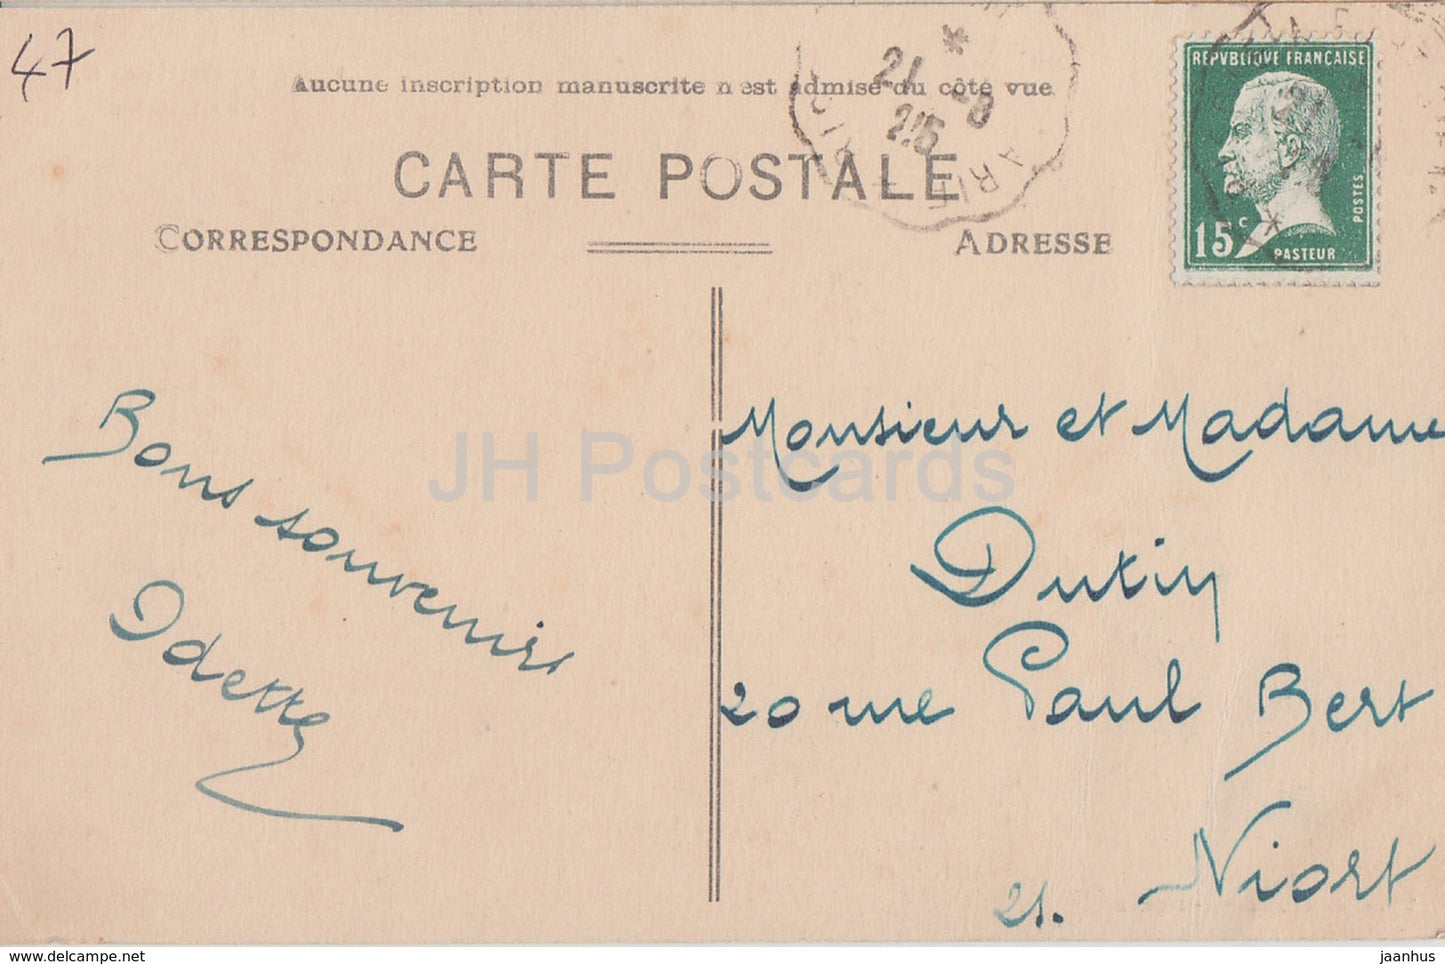 47
Aucune inscription manuscrite n'est admise du côté vue
CARTE POSTALE
CORRESPONDANCE
ADRESSE
21 -8
25
REPVBLIQVE FRANÇAISE
POSTES
15c
PASTEUR
Bons souvenirs
Odette
Monsieur et Madame
20 rue Paul Bert
Niort
21.
JH Postcards
delcampe.net
jaanhus